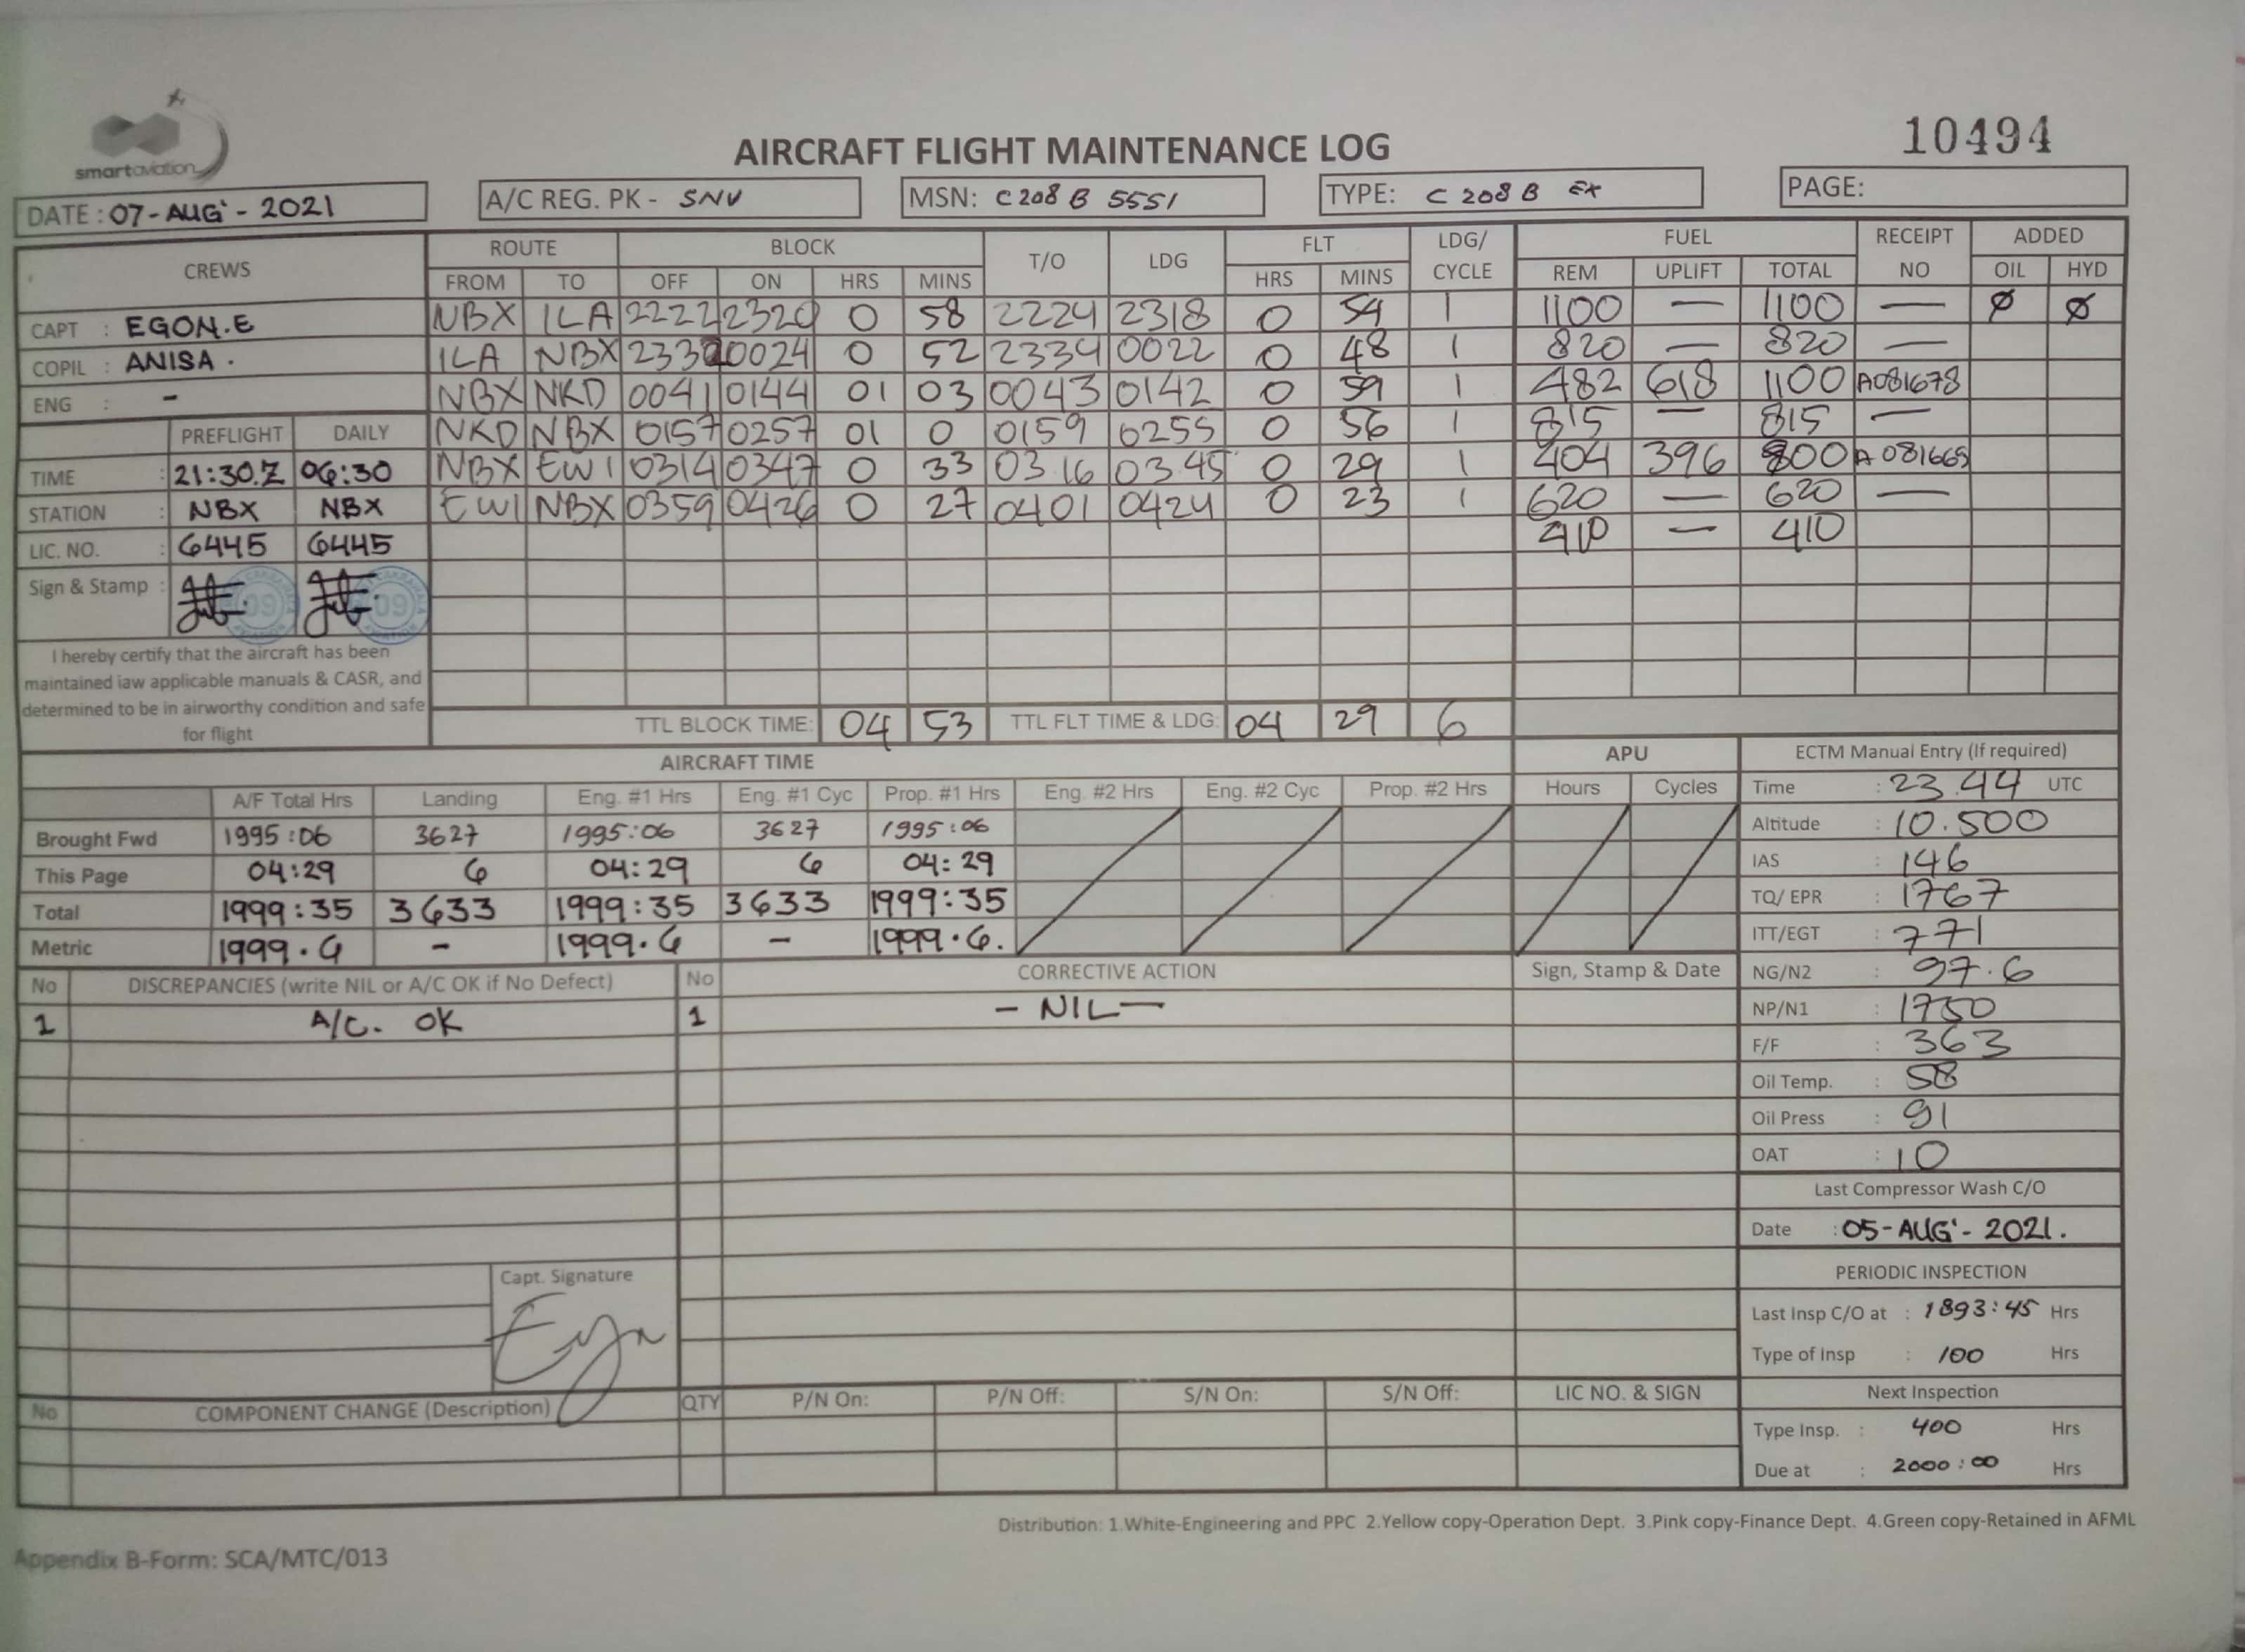 smartaviation
10494
AIRCRAFT FLIGHT MAINTENANCE LOG
DATE : 07-AUG'-2021 A/C REG. PK - SNV MSN: C208B 5551 TYPE: C208B EX PAGE:
CREWS ROUTE BLOCK T/O LDG FLT LDG/ CYCLE FUEL RECEIPT NO ADDED
FROM TO OFF ON HRS MINS HRS MINS REM UPLIFT TOTAL OIL HYD
CAPT : EGON.E NBX ILA 2222 2320 0 58 2224 2318 0 54 1 1100 — 1100 — Ø Ø
COPIL : ANISA . ILA NBX 2332 0024 0 52 2334 0022 0 48 1 820 — 820 —
ENG : - NBX NKD 0041 0144 01 03 0043 0142 0 59 1 482 618 1100 A081678
PREFLIGHT DAILY NKD NBX 0157 0257 01 0 0159 0255 0 56 1 815 — 815 —
TIME : 21:30.Z 06:30 NBX EWI 0314 0347 0 33 03.16 03.45 0 29 1 404 396 800 A081665
STATION : NBX NBX EWI NBX 0359 0426 0 27 0401 0424 0 23 1 620 — 620 —
LIC. NO. : 6445 6445 410 — 410
Sign & Stamp : 09 09
I hereby certify that the aircraft has been
maintained iaw applicable manuals & CASR, and
determined to be in airworthy condition and safe
for flight
TTL BLOCK TIME: 04 53 TTL FLT TIME & LDG: 04 29 6
AIRCRAFT TIME APU ECTM Manual Entry (If required)
A/F Total Hrs Landing Eng. #1 Hrs Eng. #1 Cyc Prop. #1 Hrs Eng. #2 Hrs Eng. #2 Cyc Prop. #2 Hrs Hours Cycles Time : 23.44 UTC
Brought Fwd 1995:06 3627 1995:06 3627 1995:06 Altitude : 10.500
This Page 04:29 6 04:29 6 04:29 IAS : 146
Total 1999:35 3633 1999:35 3633 1999:35 TQ/ EPR : 1767
Metric 1999.6 - 1999.6 - 1999.6. ITT/EGT : 771
No DISCREPANCIES (write NIL or A/C OK if No Defect) No CORRECTIVE ACTION Sign, Stamp & Date NG/N2 : 97.6
1 A/C. OK 1 - NIL - NP/N1 : 1750
F/F : 363
Oil Temp. : 58
Oil Press : 91
OAT : 10
Last Compressor Wash C/O
Date : 05-AUG'-2021.
Capt. Signature PERIODIC INSPECTION
Last Insp C/O at : 1893:45 Hrs
Type of Insp : 100 Hrs
No COMPONENT CHANGE (Description) QTY P/N On: P/N Off: S/N On: S/N Off: LIC NO. & SIGN Next Inspection
Type Insp. : 400 Hrs
Due at : 2000:00 Hrs
Distribution: 1.White-Engineering and PPC 2.Yellow copy-Operation Dept. 3.Pink copy-Finance Dept. 4.Green copy-Retained in AFML
Appendix B-Form: SCA/MTC/013